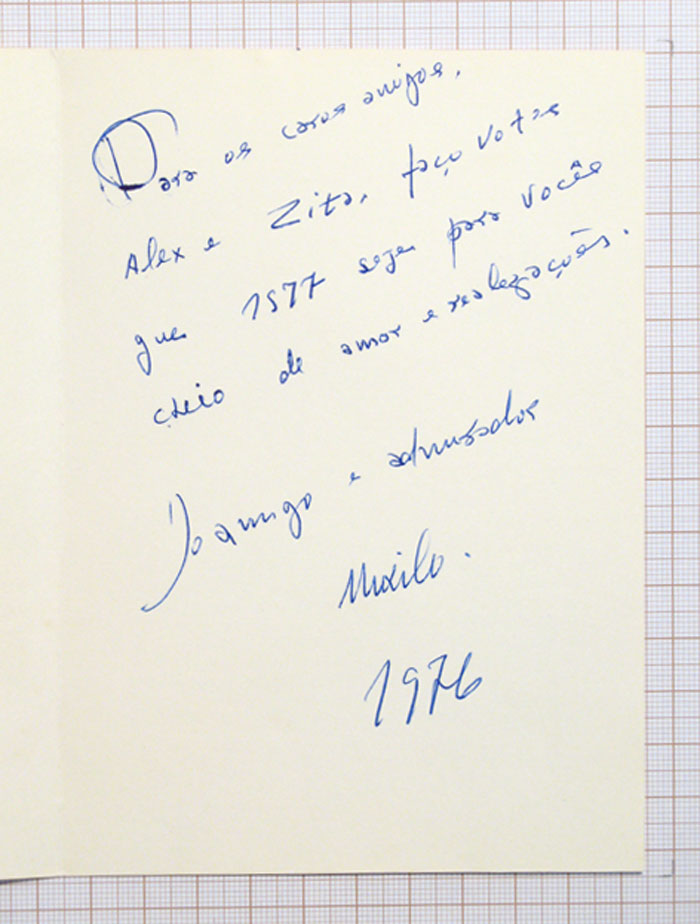 Para os caros amigos,
Alex e Zita, faço votos
que 1977 seja para vocês
cheio de amor e realizações.
Do amigo e admirador
Murilo.
1976